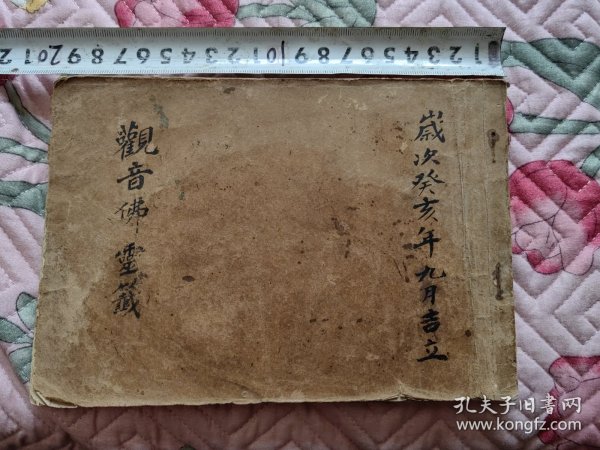 歲次癸亥年九月吉立
觀音佛靈籤
孔夫子旧書网
www.kongfz.com